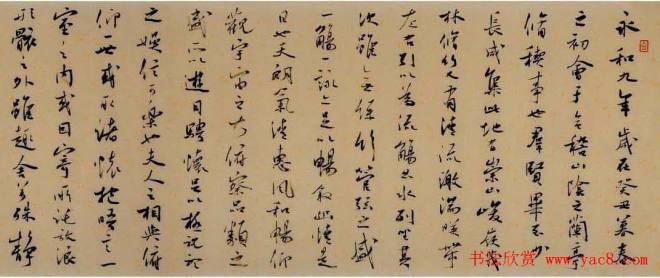 永和九年歲在癸丑暮春
之初會于會稽山陰之蘭亭
脩禊事也羣賢畢至少
長咸集此地有崇山峻嶺茂
林脩竹又有清流激湍暎帶
左右引以為流觴曲水列坐其
次雖無絲竹管弦之盛
一觴一詠亦足以暢敘幽情是
日也天朗氣清惠風和暢仰
觀宇宙之大俯察品類之
盛所以遊目騁懷足以極視聽
之娛信可樂也夫人之相與俯
仰一世或取諸懷抱悟言一
室之內或因寄所託放浪
形骸之外雖趣舍萬殊靜
书法欣赏
www.yac8.com